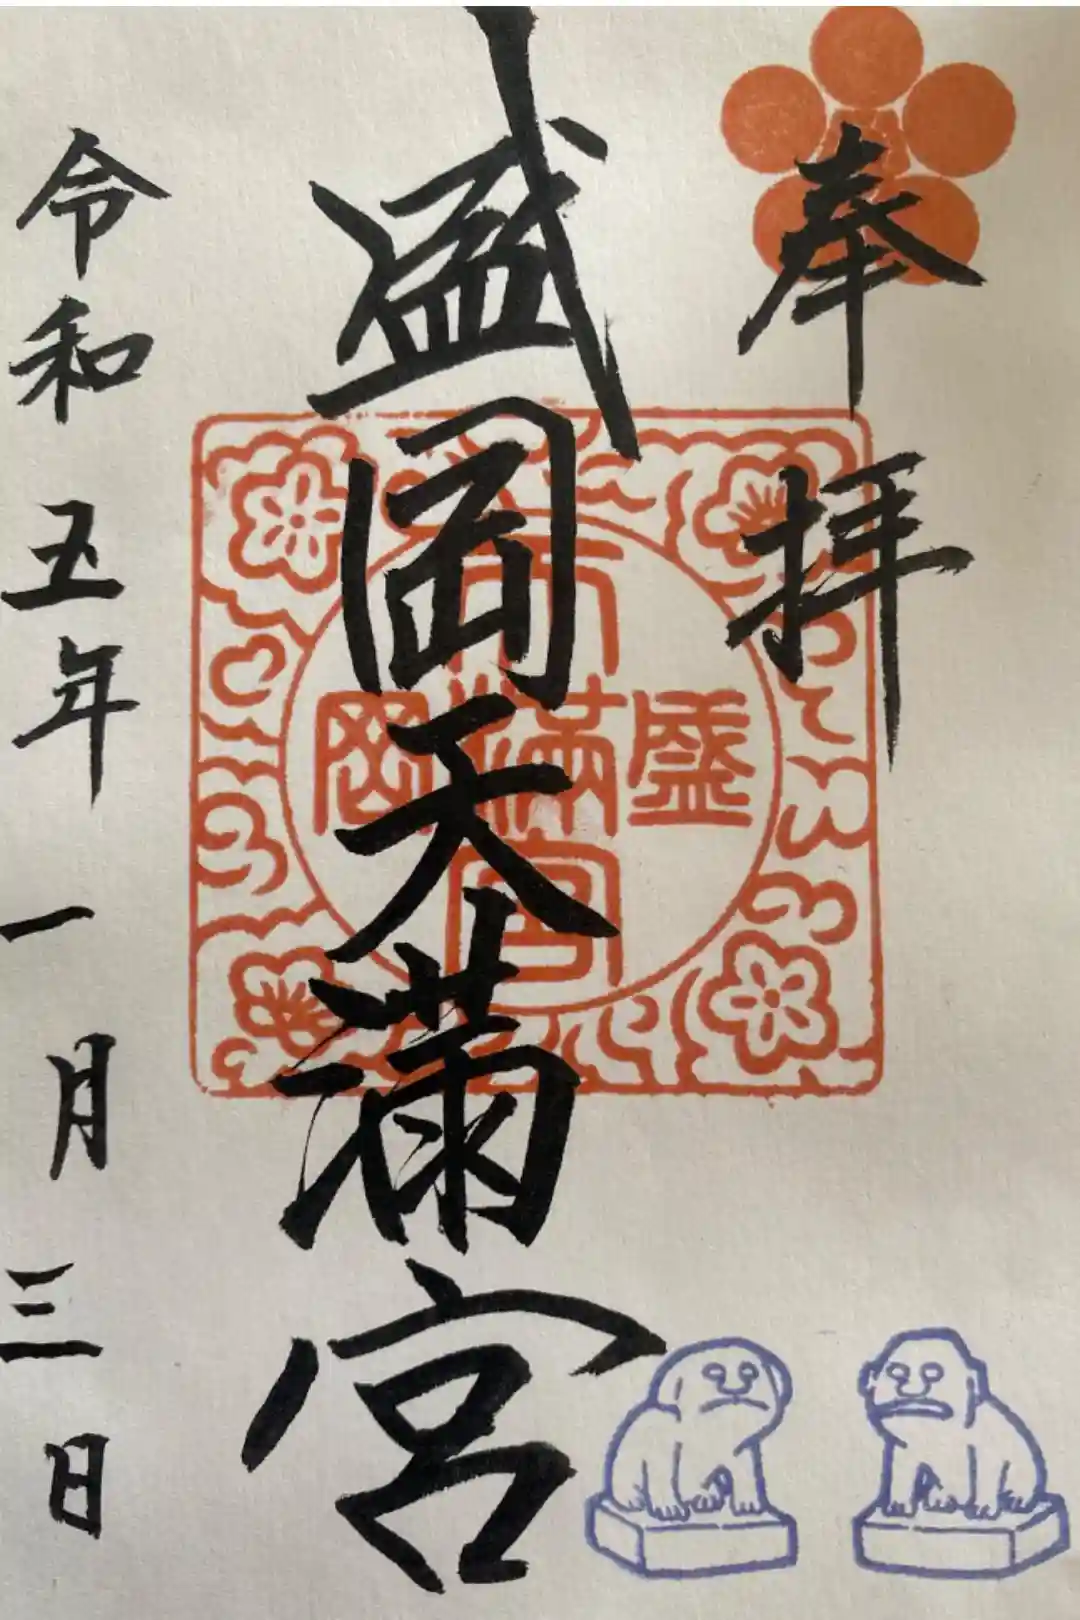 奉拝
盛岡天満宮
天
盛満岡
宮
令和五年一月三日